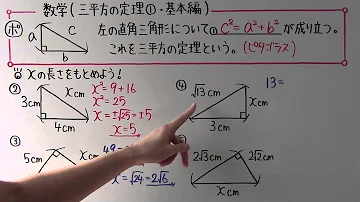 数学(三平方の定理①・基本編)
ポ
a
c
b
左の直角三角形について c²=a²+b² が成り立つ。
これを三平方の定理という。(ピタゴラス)
xの長さをもとめよう!
②
3cm
xcm
4cm
x²=9+16
x²=25
x=±√25=±5
x=5
④
√13cm
xcm
13=
③
5cm
49=
x=√24=2√6
2√3cm
2√2cm
xcm